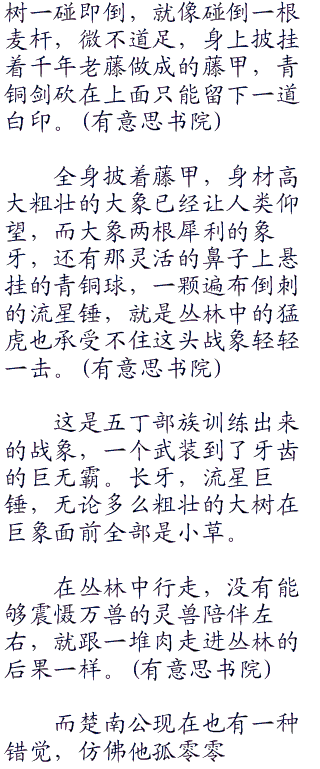 树一碰即倒，就像碰倒一根
麦杆，微不道足，身上披挂
着千年老藤做成的藤甲，青
铜剑砍在上面只能留下一道
白印。(有意思书院)
全身披着藤甲，身材高
大粗壮的大象已经让人类仰
望，而大象两根犀利的象
牙，还有那灵活的鼻子上悬
挂的青铜球，一颗遍布倒刺
的流星锤，就是丛林中的猛
虎也承受不住这头战象轻轻
一击。(有意思书院)
这是五丁部族训练出来
的战象，一个武装到了牙齿
的巨无霸。长牙，流星巨
锤，无论多么粗壮的大树在
巨象面前全部是小草。
在丛林中行走，没有能
够震慑万兽的灵兽陪伴左
右，就跟一堆肉走进丛林的
后果一样。(有意思书院)
而楚南公现在也有一种
错觉，仿佛他孤零零